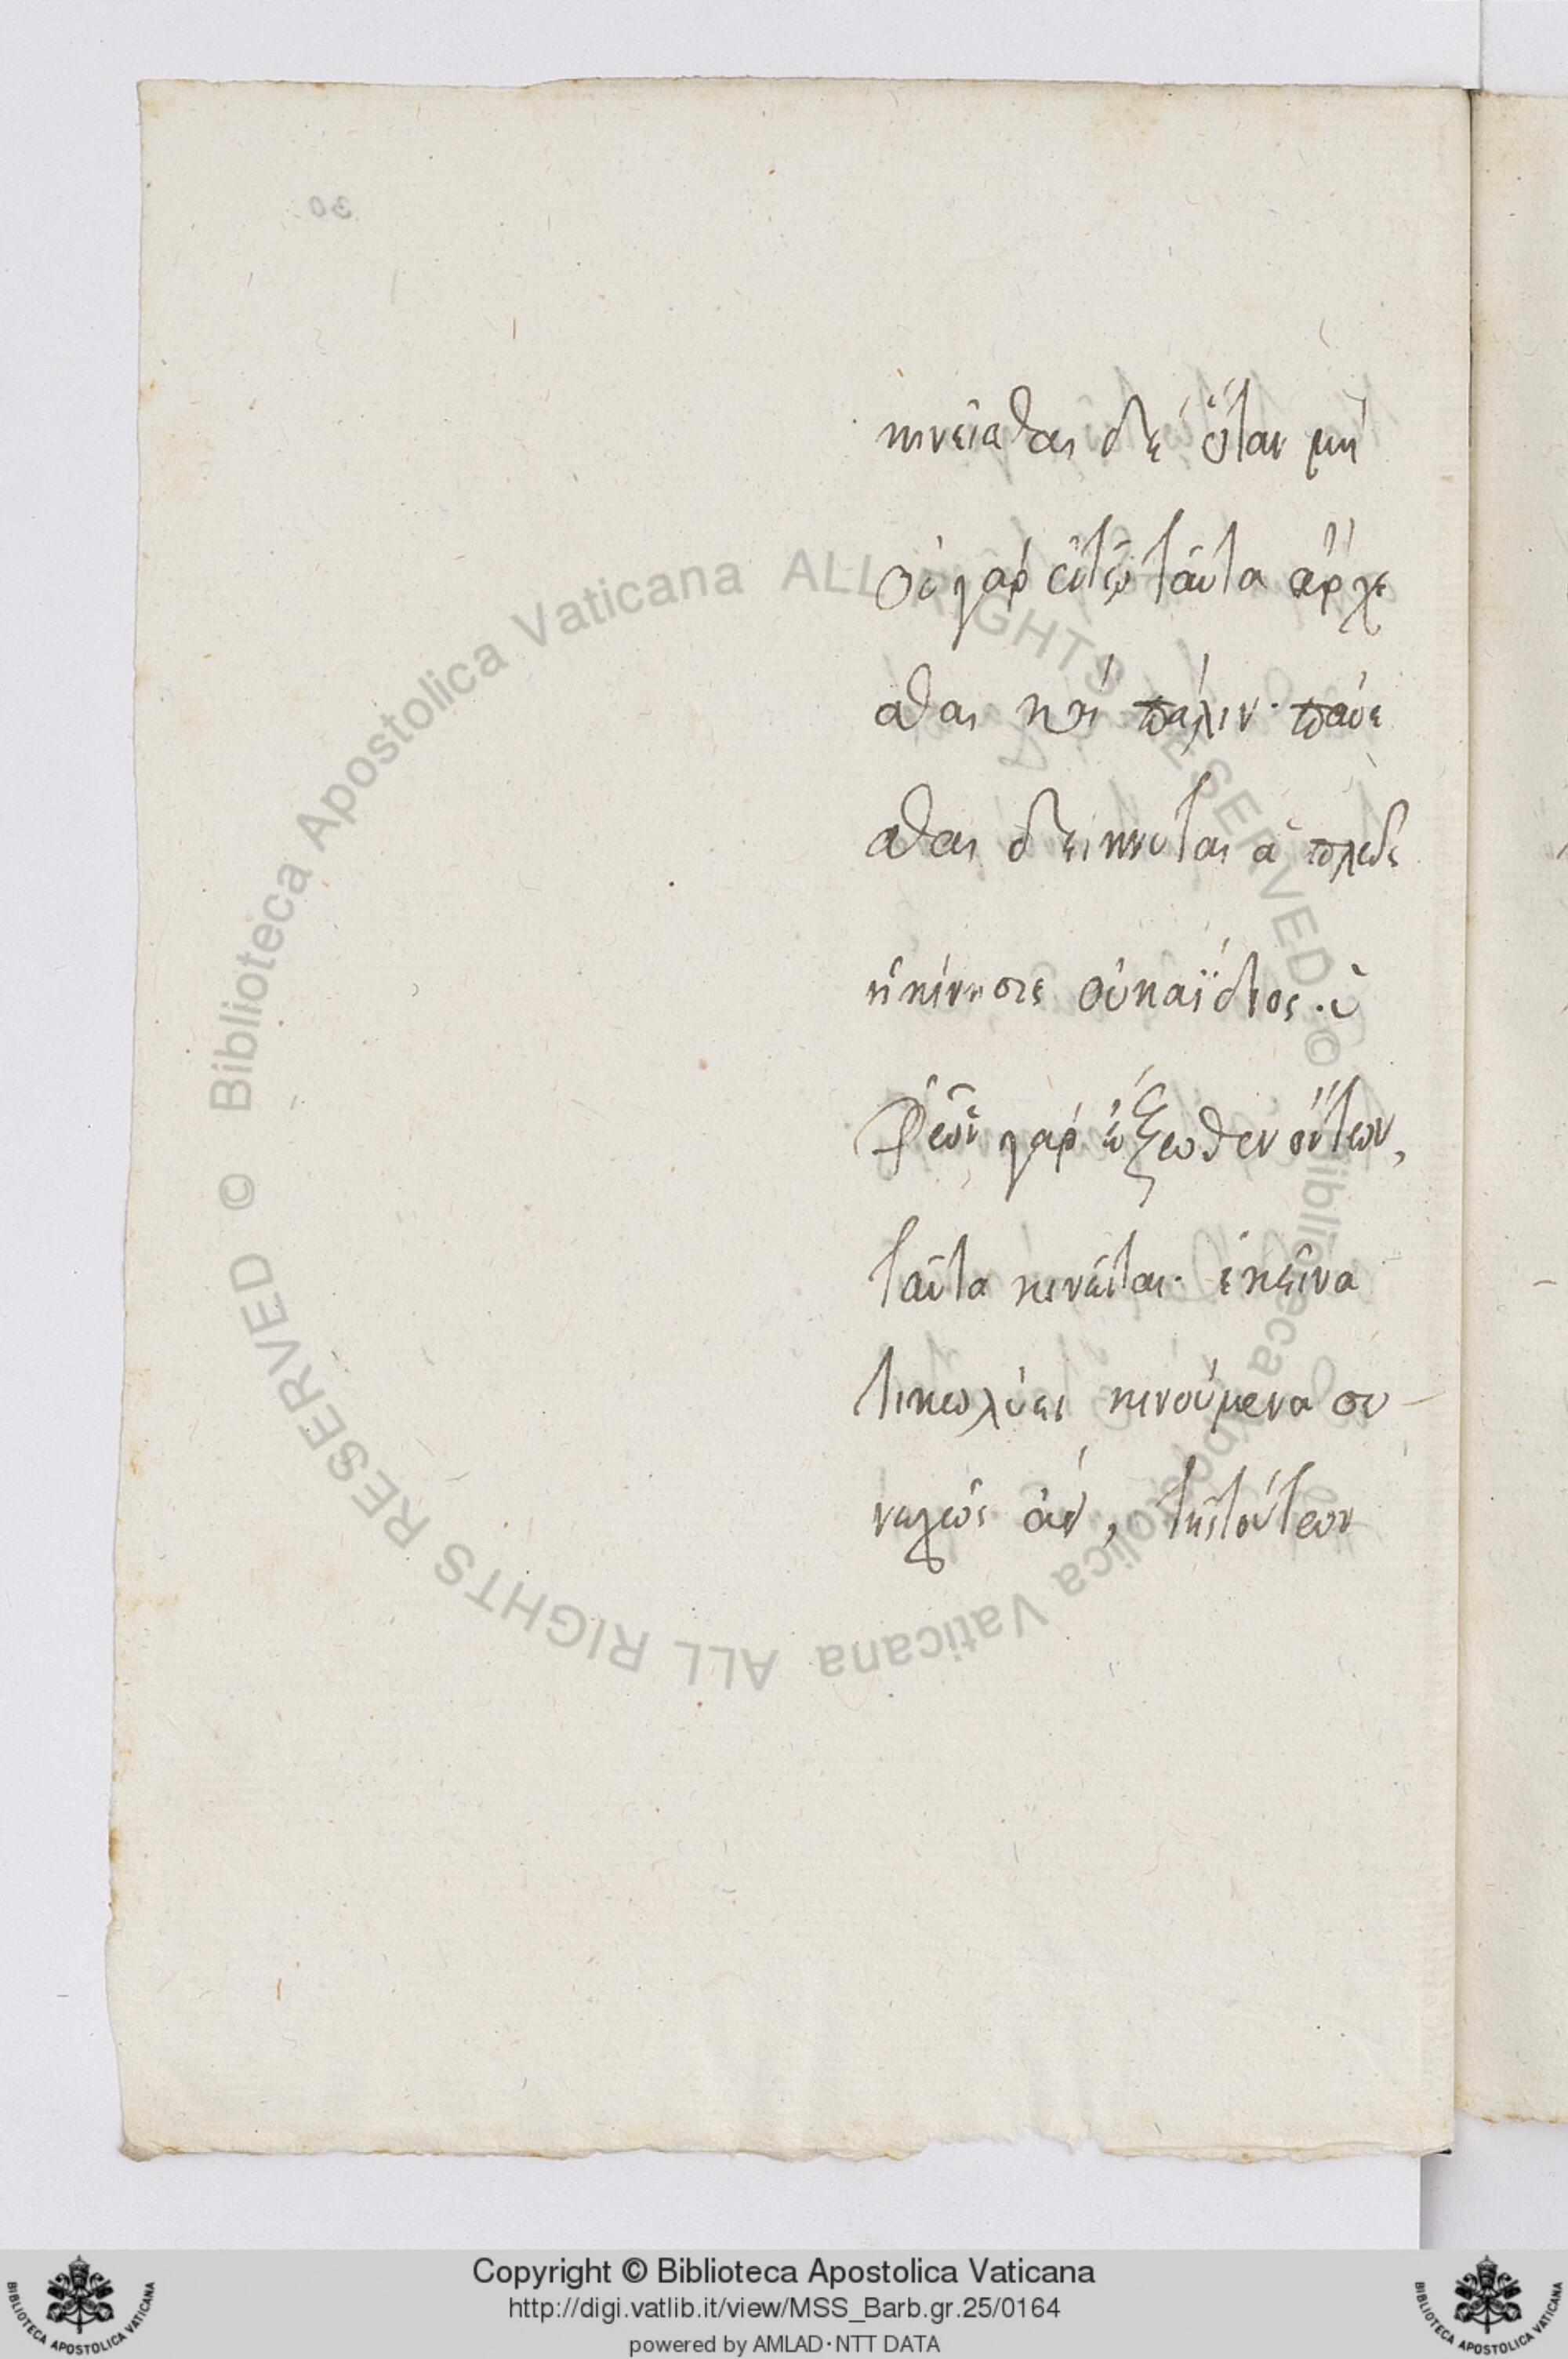 κινεῖσθαι δὲ ὅταν μὴ
οὐ γὰρ ἐν τῷ ταῦτα ἄρχε
σθαι καὶ πάλιν· παύε
σθαι δείκνυται
ἡ κίνησις οὐκ ἀΐδιος.
γὰρ ἔξωθεν ὄντων,
ταῦτα κινεῖται· ἐκεῖνα
τι κωλύει κινούμενα συ
νεχῶς ἀεὶ, τῆς τούτων
30
© Biblioteca Apostolica Vaticana ALL RIGHTS RESERVED © Biblioteca Apostolica Vaticana ALL RIGHTS RESERVED
Copyright © Biblioteca Apostolica Vaticana
http://digi.vatlib.it/view/MSS_Barb.gr.25/0164
powered by AMLAD·NTT DATA
BIBLIOTECA APOSTOLICA VATICANA
BIBLIOTECA APOSTOLICA VATICANA